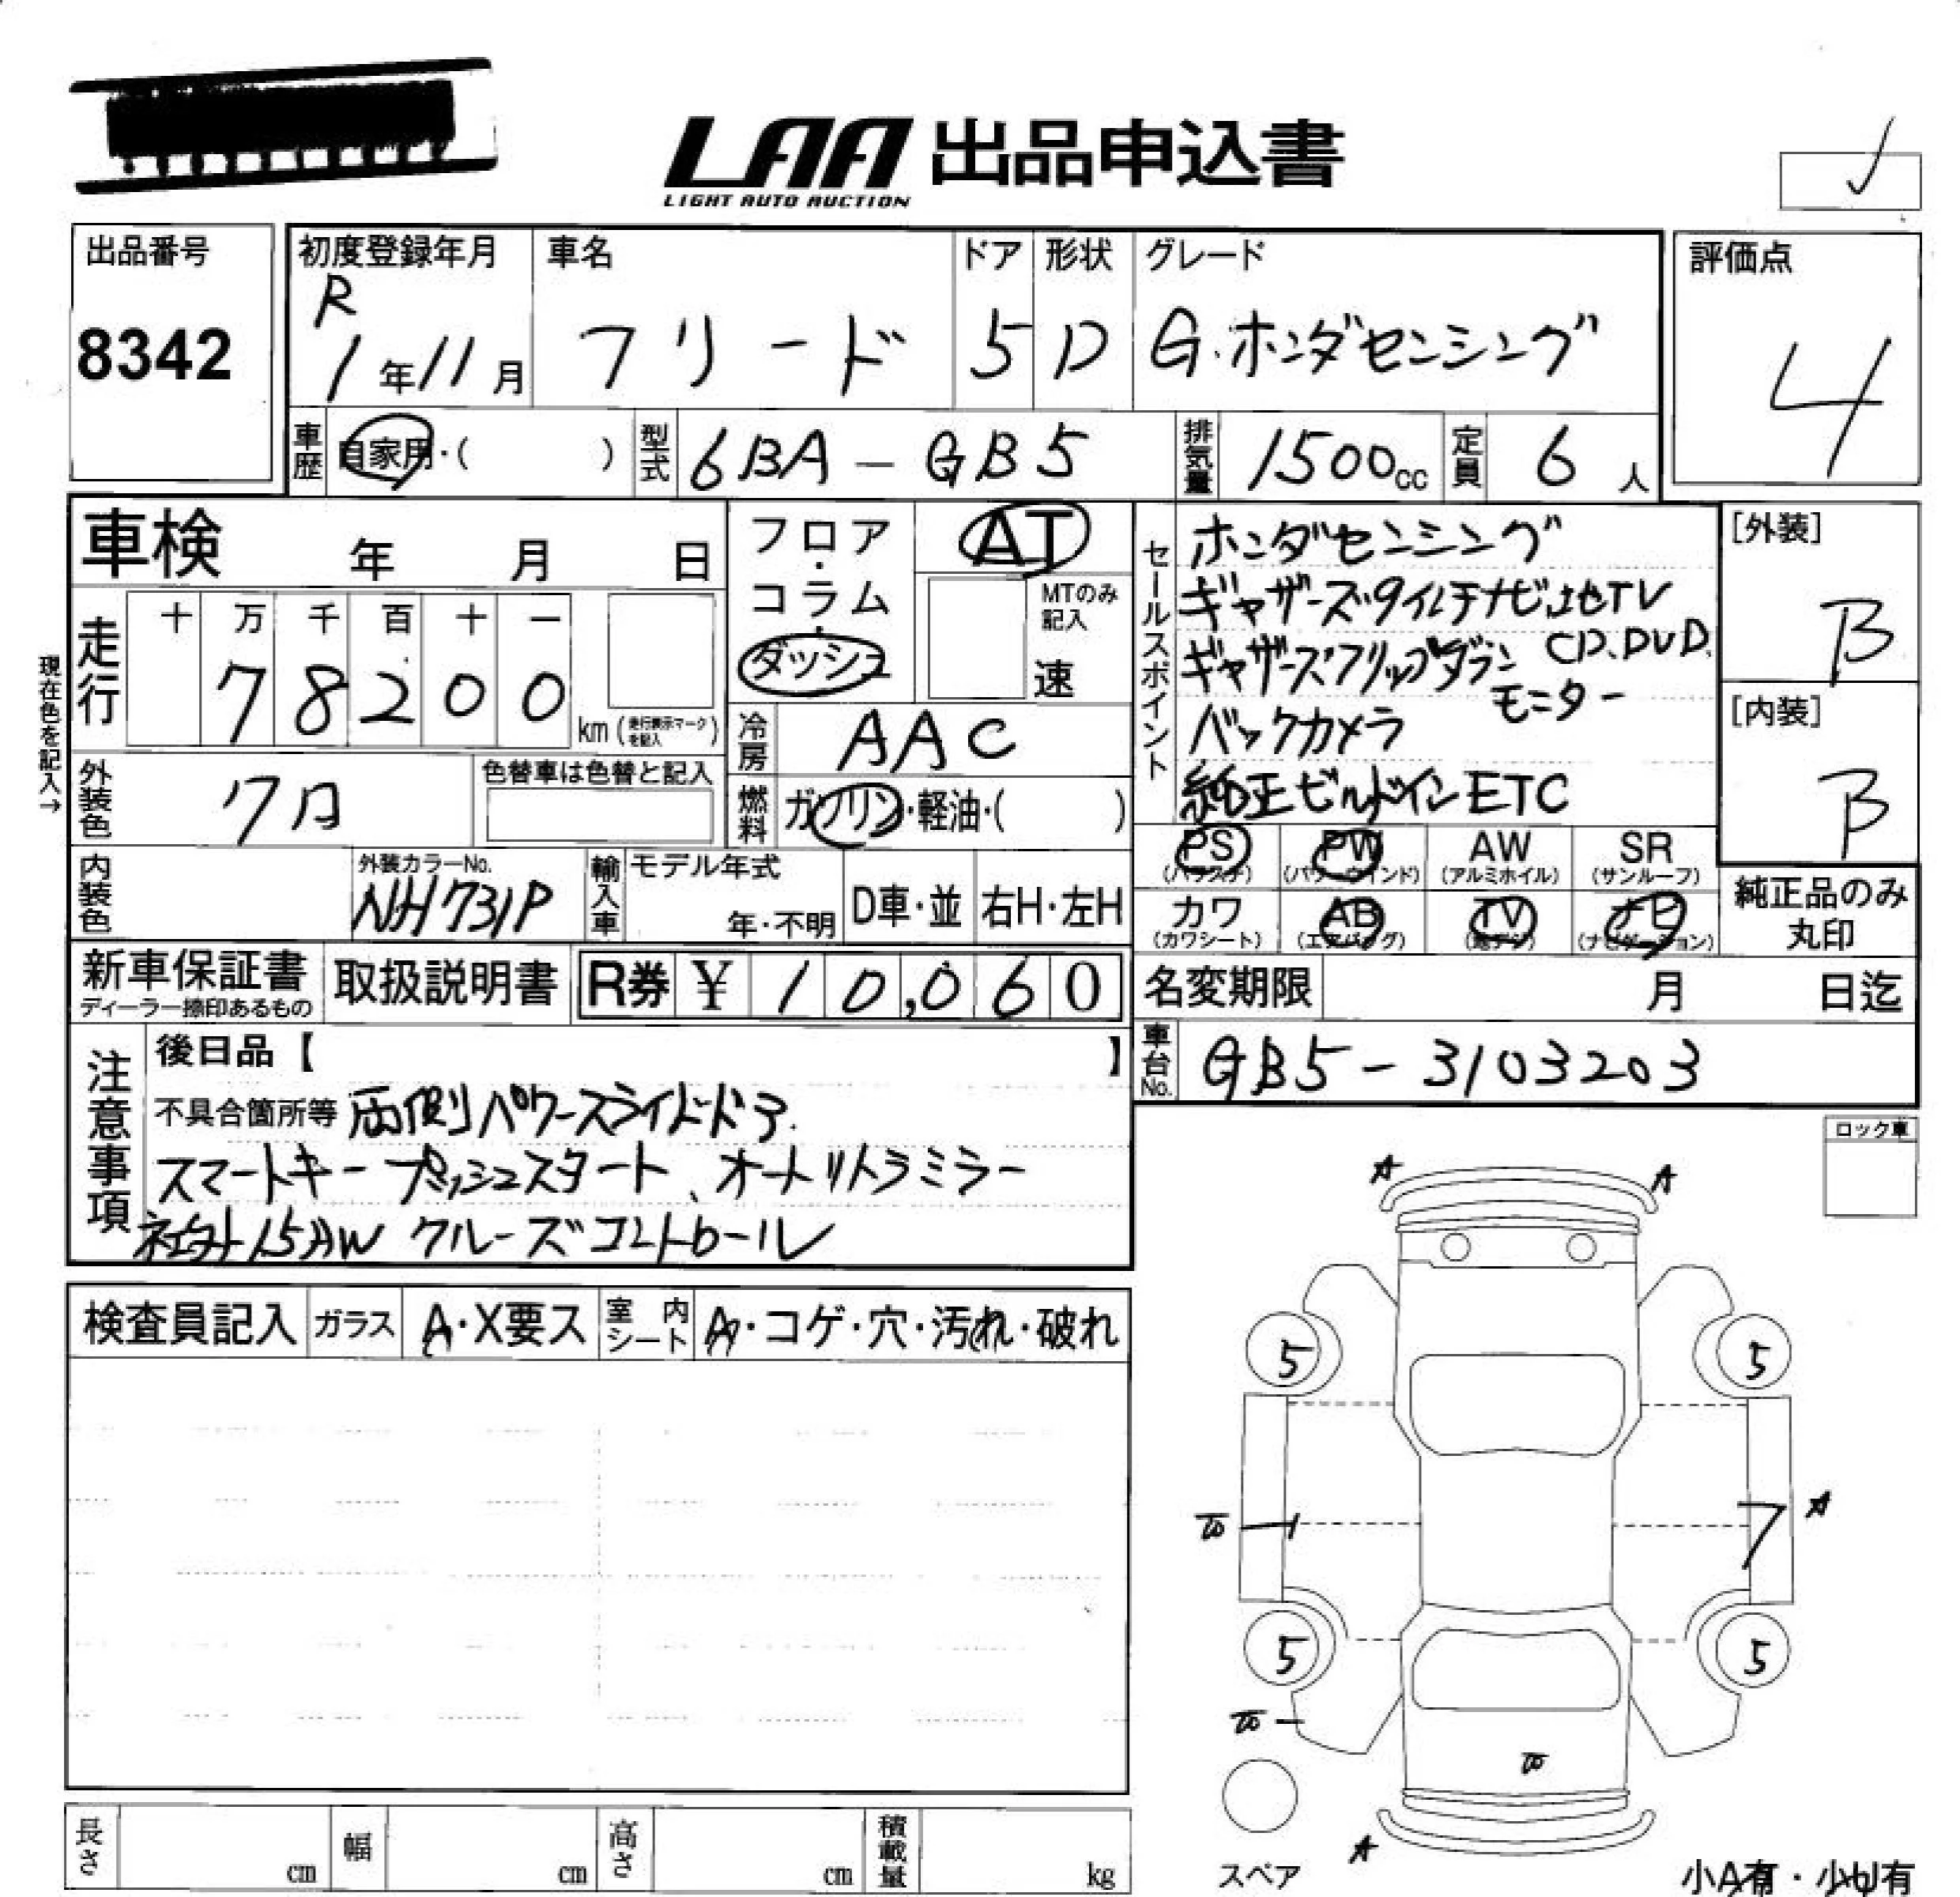 LAA 出品申込書
LIGHT AUTO AUCTION
出品番号
8342
初度登録年月
R
1年11月
車名
フリード
ドア
5
形状
D
グレード
G・ホンダセンシング
評価点
4
車歴
自家用・( )
型式
6BA-GB5
排気量
1500cc
定員
6人
車検 年 月 日
フロア・コラム・ダッシュ
AT
MTのみ記入
速
セールスポイント
ホンダセンシング
ギャザーズ 地TV
CD、DVD
ギャザーズフリップダウン
モニター
バックカメラ
純正ビルドインETC
[外装]
B
[内装]
B
現在色を記入→
走行
十 万 千 百 十 一
78200
km(走行表示マークを記入)
冷房
AAC
外装色
クロ
色替車は色替と記入
燃料
ガソリン・軽油・( )
内装色
外装カラーNo.
NH731P
輸入車
モデル年式
年・不明
D車・並
右H・左H
PS
(パワステ)
PW
(パワーウインド)
AW
(アルミホイル)
SR
(サンルーフ)
カワ
(カワシート)
AB
(エアバッグ)
TV
(地デジ)
ナビ
(ナビゲーション)
純正品のみ
丸印
新車保証書
ディーラー捺印あるもの
取扱説明書
R券 ¥10,060
名変期限 月 日迄
車台No.
GB5-3103203
注意事項
後日品【 】
不具合箇所等 両側パワースライドドア.
スマートキー プッシュスタート、オートリトラミラー
社外15AW クルーズコントロール
ロック車
検査員記入
ガラス
A・X要ス
室内シート
A・コゲ・穴・汚れ・破れ
A A
5 5
A
5 5
A
スペア
小A有・小U有
長さ cm
幅 cm
高さ cm
積載量 kg